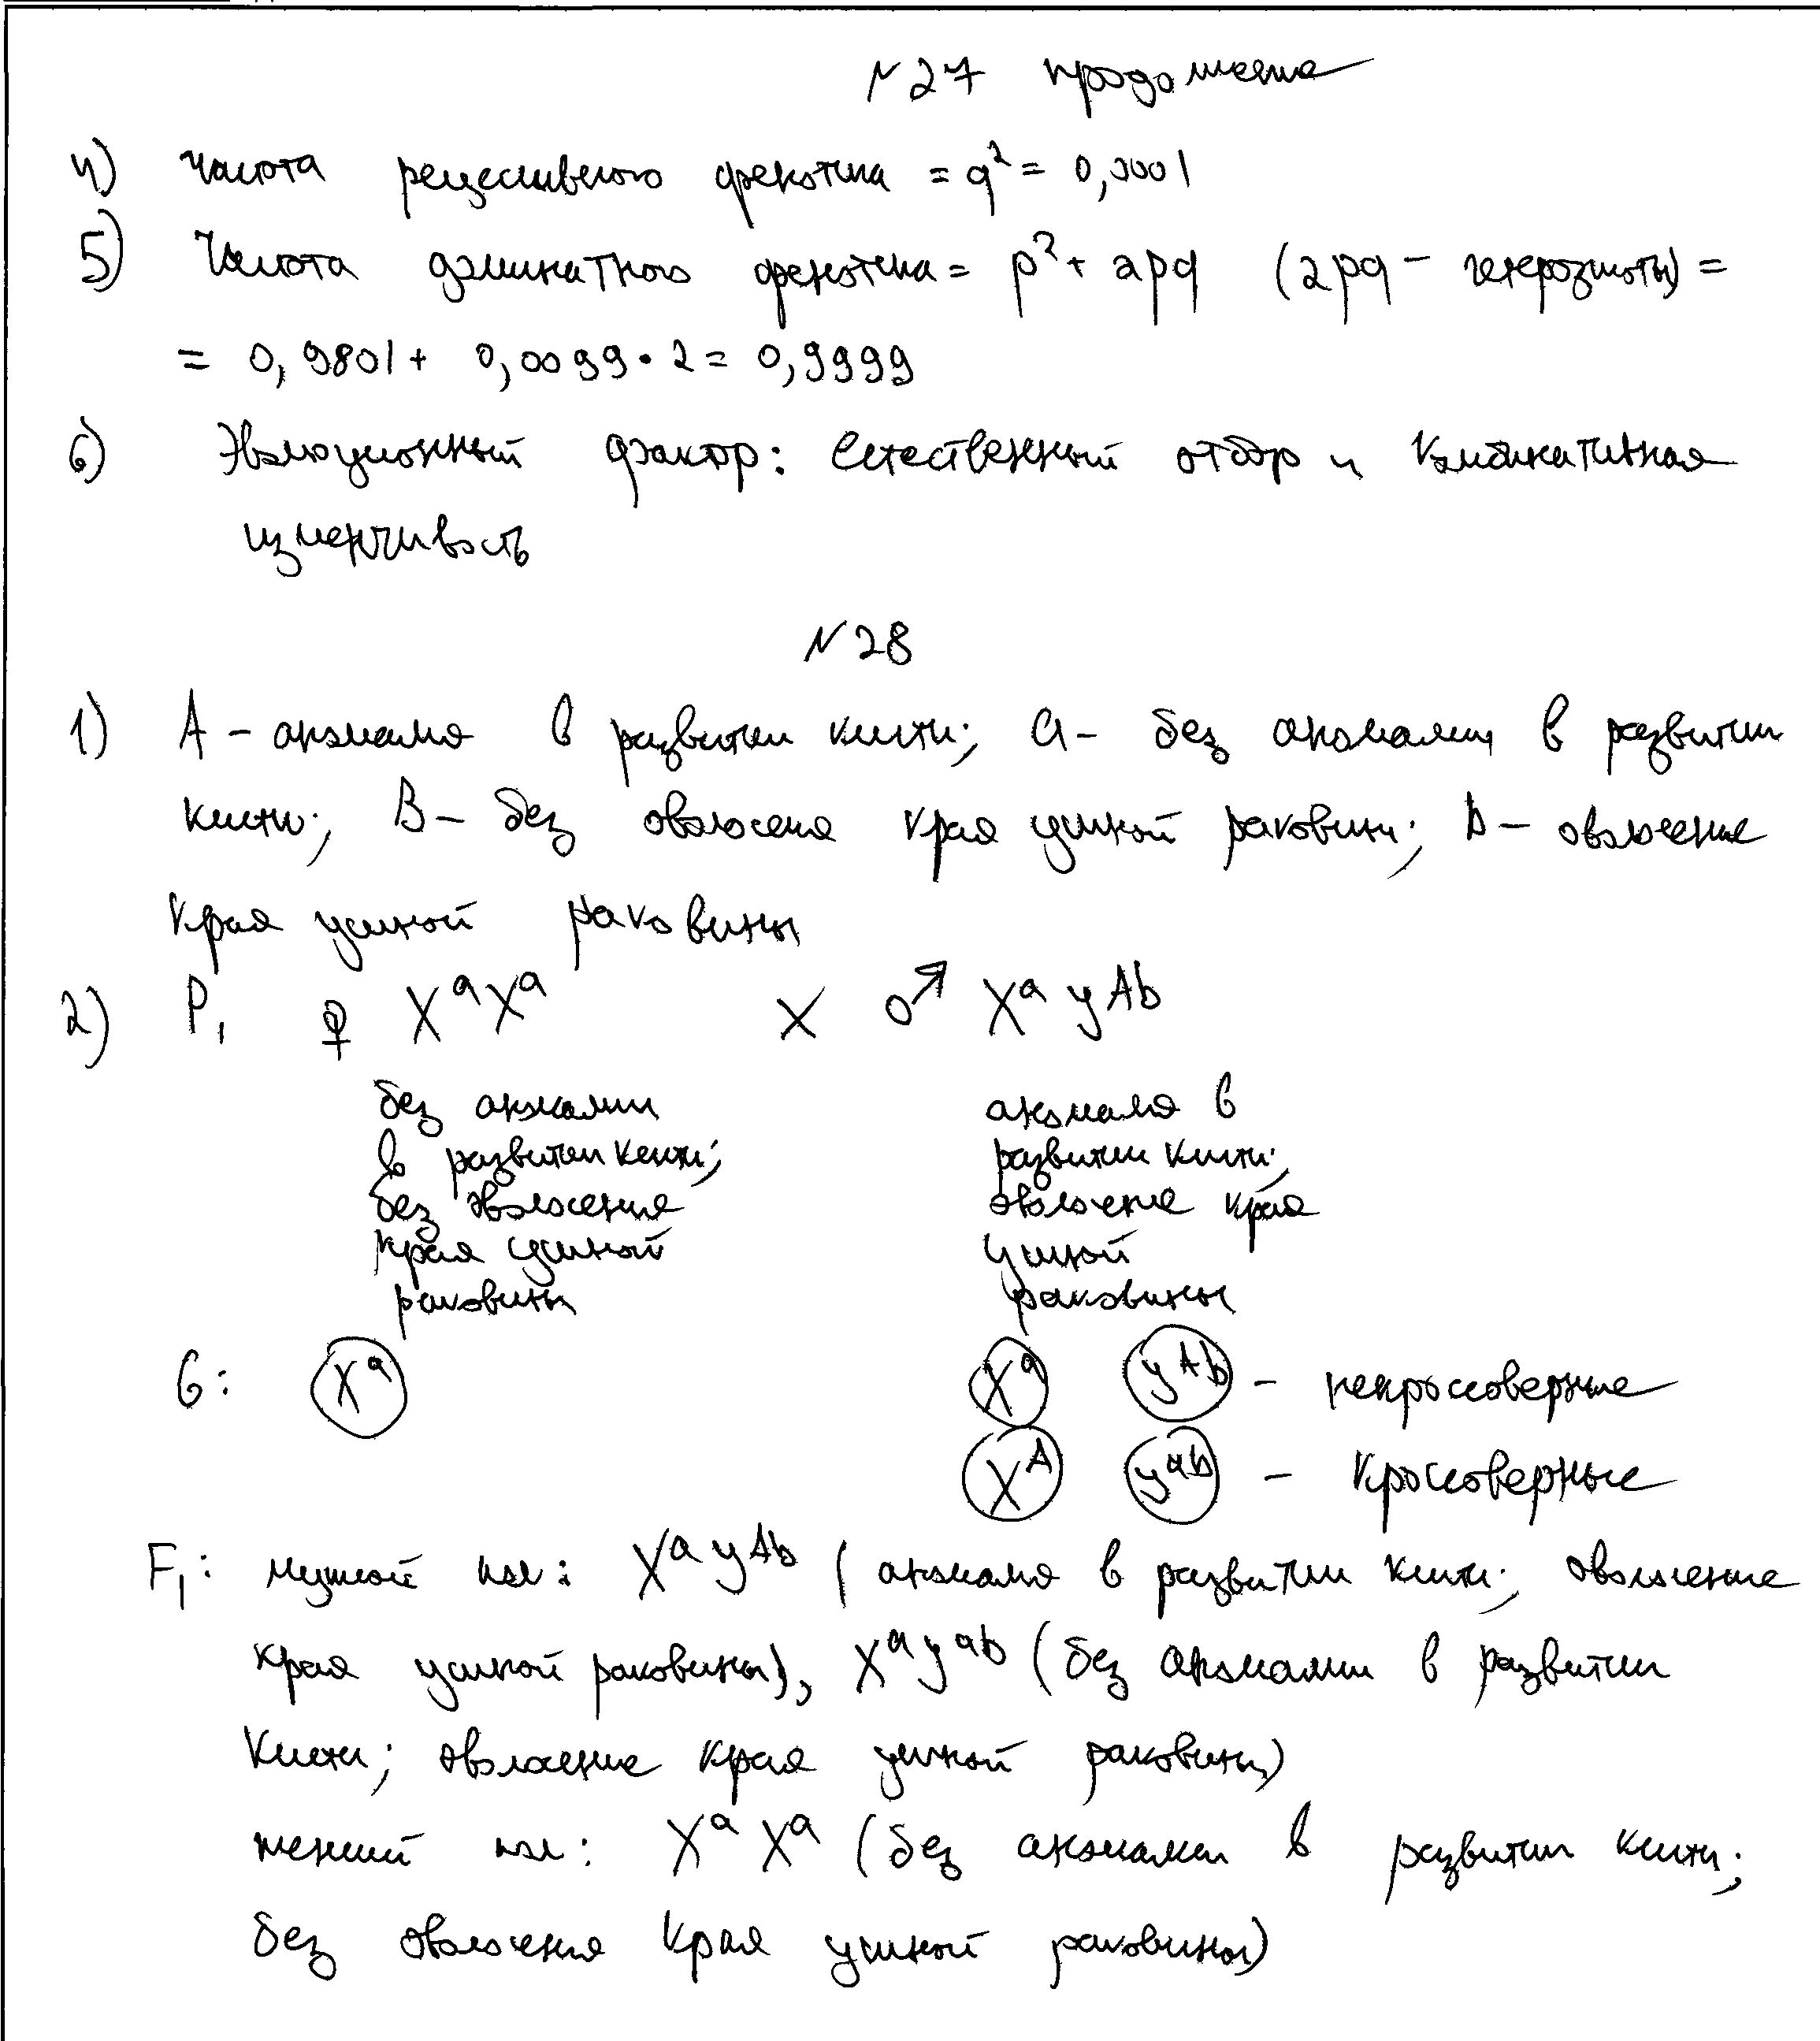 №27 продолжение
4) Частота рецессивного фенотипа = q² = 0,0001
5) Частота доминатного фенотипа = p² + 2pq (2pq - гетерозиготы) =
= 0,9801 + 0,0099 · 2 = 0,9999
6) Эволюционный фактор: Естественный отбор и комбинативная
изменчивость
№28
1) A - аномалия в развитии кисти; a - без аномалии в развитии
кисти; B - без оволосения края ушной раковины; b - оволосение
края ушной раковины
2) P₁ ♀ XᵃXᵃ X ♂ Xᵃ yᴬb
без аномалии
в развитии кисти;
без оволосения
края ушной
раковины
аномалия в
развитии кисти;
оволосение края
ушной
раковины
G: Xᵃ Xᵃ yᴬb - некроссоверные
Xᴬ yᵃb - кроссоверные
F₁: мужской пол: Xᵃ yᴬb (аномалия в развитии кисти; оволосение
края ушной раковины), Xᵃ yᵃb (без аномалии в развитии
кисти; оволосение края ушной раковины)
женский пол: Xᵃ Xᵃ (без аномалии в развитии кисти;
без оволосения края ушной раковины)